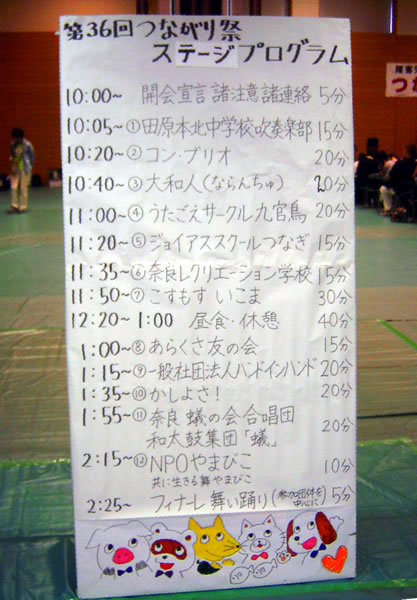 第36回つながり祭
ステージプログラム
10:00~ 開会宣言 諸注意 諸連絡 5分
10:05~①田原本北中学校吹奏楽部 15分
10:20~②コン・ブリオ 20分
10:40~③大和人(ならんちゅ) 20分
11:00~④うたごえサークル九官鳥 20分
11:20~⑤ジョイアススクールつなぎ 15分
11:35~⑥奈良レクリエーション学校 15分
11:50~⑦こすもす いこま 30分
12:20~1:00 昼食・休憩 40分
1:00~⑧あらくさ友の会 15分
1:15~⑨一般社団法人ハンドインハンド 20分
1:35~⑩かしよさ! 20分
1:55~⑪奈良 蟻の会合唱団
和太鼓集団「蟻」 20分
2:15~⑫NPOやまびこ 10分
共に生きる舞やまびこ
2:25~ フィナーレ 舞い踊り(参加団体を中心に) 5分
障害
つな